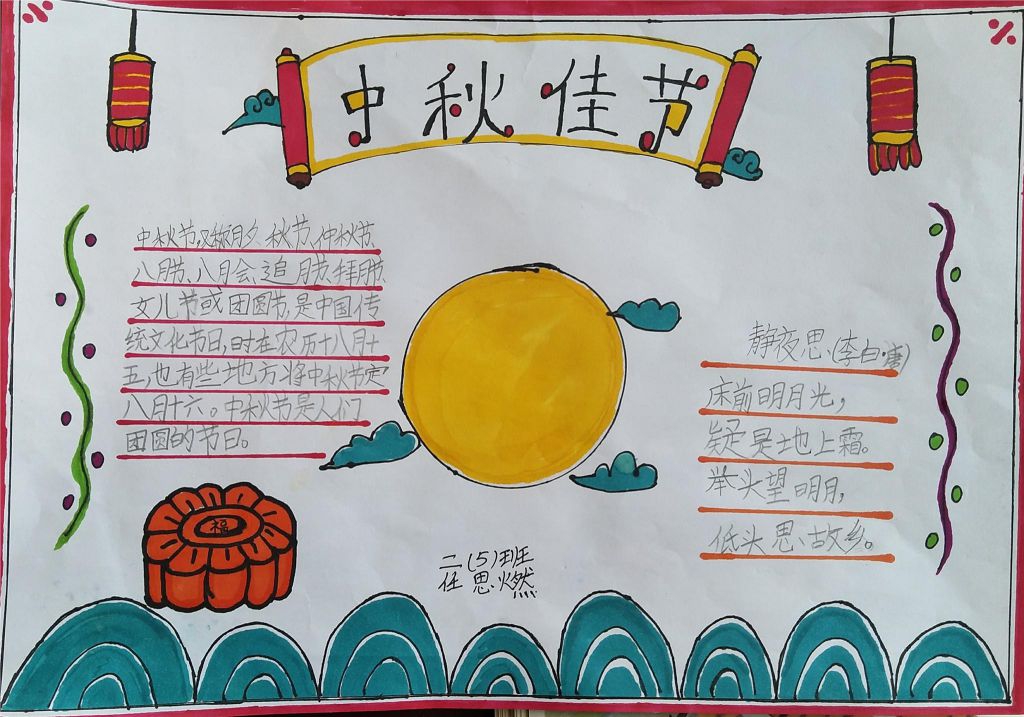 中秋佳节
中秋节,又称月夕、秋节、仲秋节、
八月节、八月会、追月节、拜月节、
女儿节或团圆节,是中国传
统文化节日,时在农历十八月十
五,也有些地方将中秋节定
八月十六。中秋节是人们
团圆的节日。
静夜思、(李白·唐)
床前明月光,
疑是地上霜。
举头望明月,
低头思故乡。
福
二(5)班
任思燃